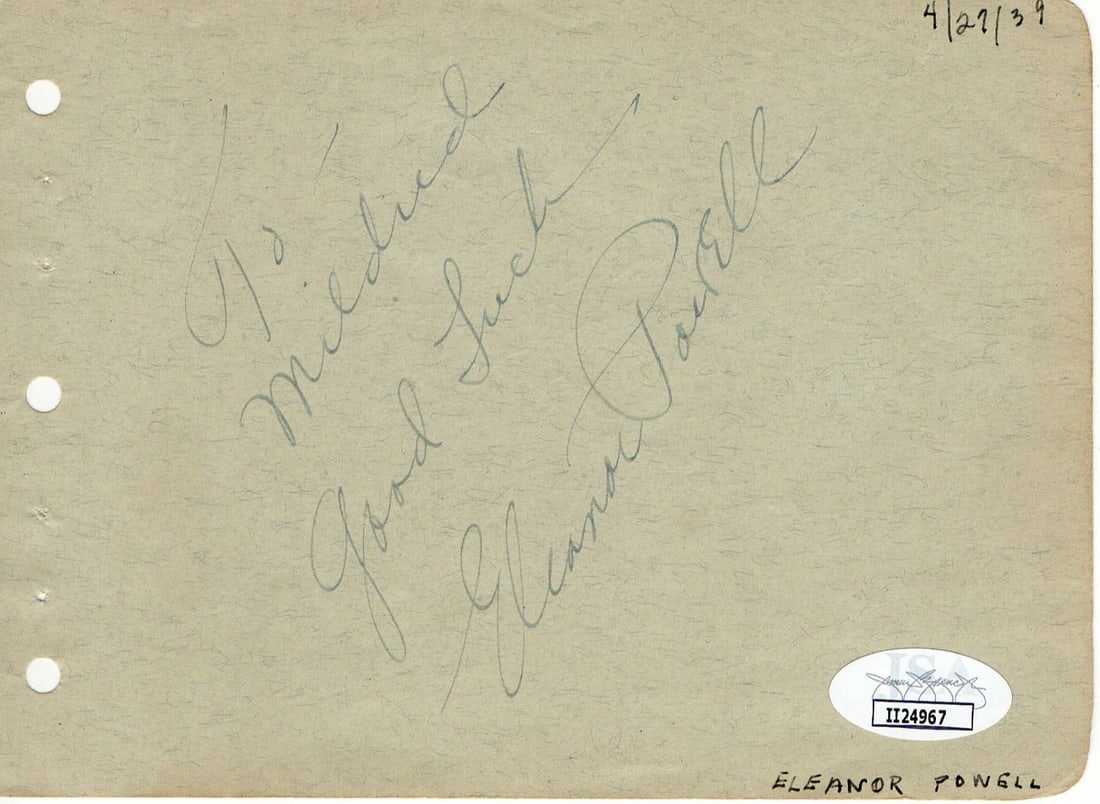 4/27/39
To
Mildred
Good Luck
Eleanor Powell
JSA
II24967
ELEANOR POWELL